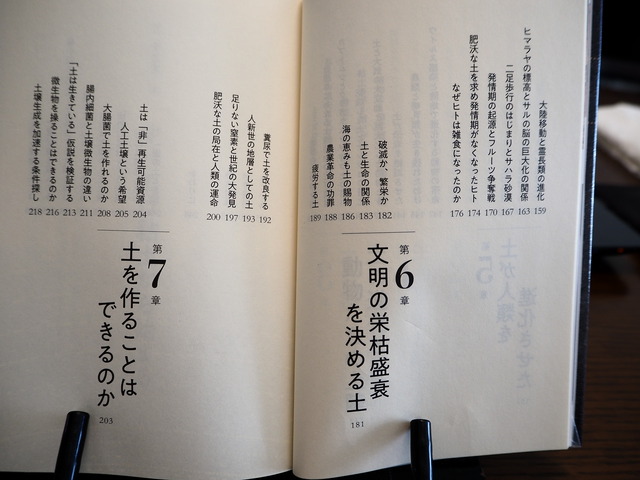 大陸移動と霊長類の進化 159
ヒマラヤの標高とサルの脳の巨大化の関係 163
二足歩行のはじまりとサハラ砂漠 167
発情期の起源とフルーツ争奪戦 170
肥沃な土を求め発情期がなくなったヒト 174
なぜヒトは雑食になったのか 176
第6章
文明の栄枯盛衰
を決める土
181
破滅か、繁栄か 182
土と生命の関係 183
海の恵みも土の賜物 186
農業革命の功罪 188
疲労する土 189
糞尿で土を改良する 192
人新世の地層としての土 193
足りない窒素と世紀の大発見 197
肥沃な土の局在と人類の運命 200
第7章
土を作ることは
できるのか
203
土は「非」再生可能資源 204
人工土壌という希望 205
大腸菌で土を作れるのか 208
腸内細菌と土壌微生物の違い 211
「土は生きている」仮説を検証する 213
微生物を操ることはできるのか 216
土壌生成を加速する条件探し 218